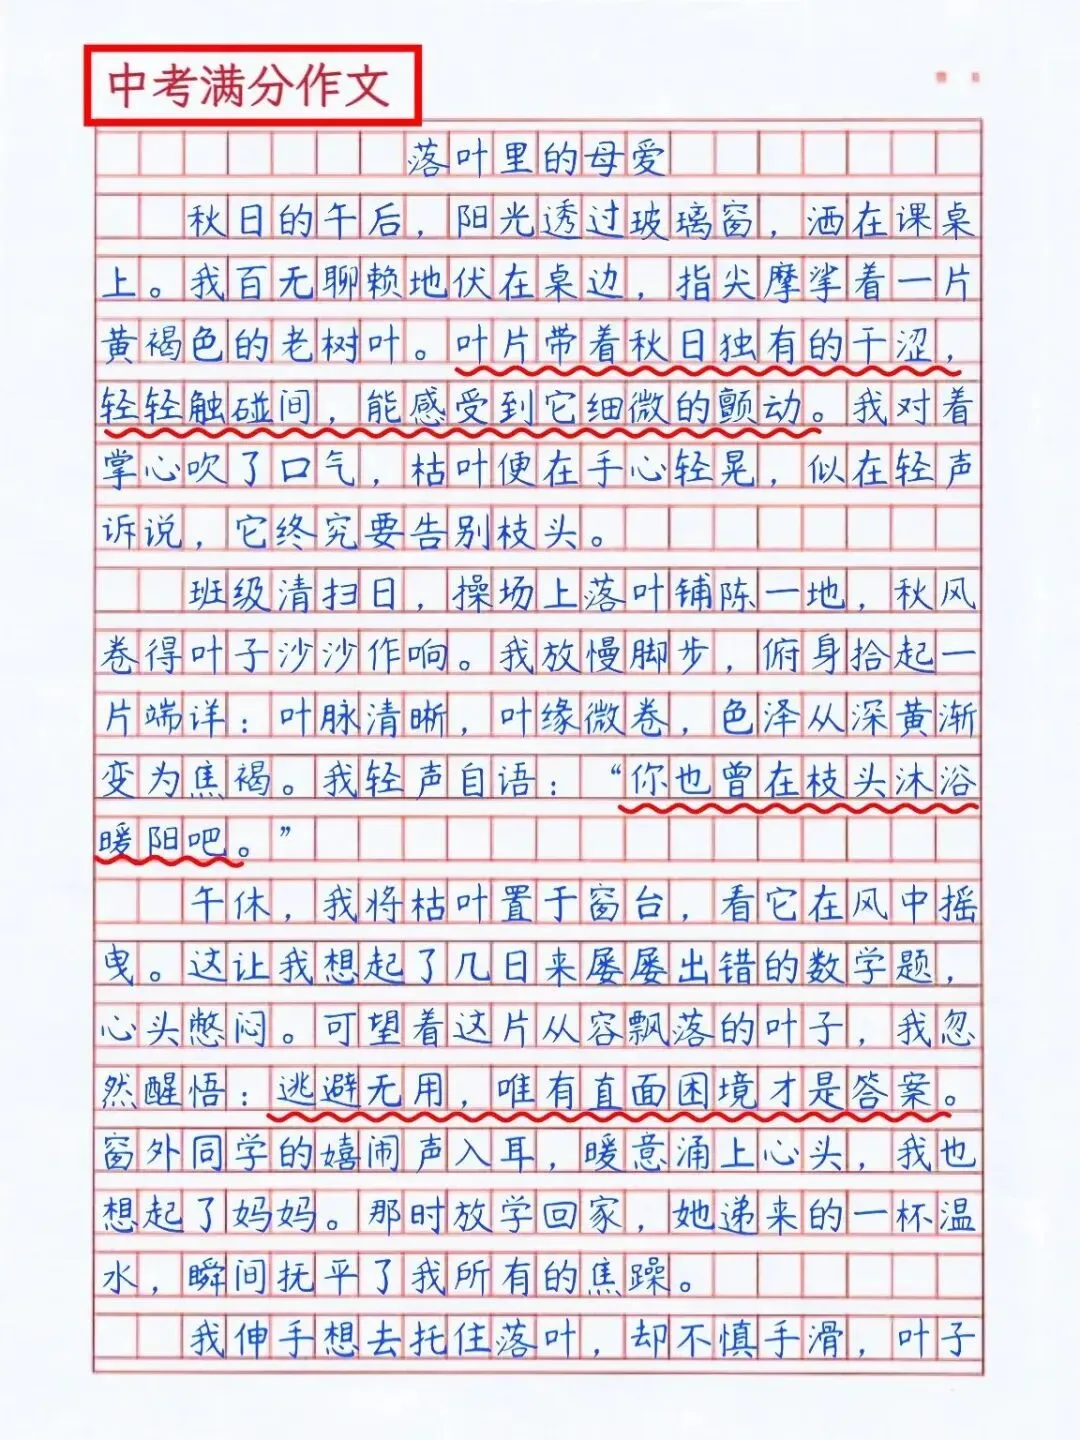 中考满分作文
落叶里的母爱
秋日的午后，阳光透过玻璃窗，洒在课桌
上。我百无聊赖地伏在桌边，指尖摩挲着一片
黄褐色的老树叶。叶片带着秋日独有的干涩，
轻轻触碰间，能感受到它细微的颤动。我对着
掌心吹了口气，枯叶便在手心轻晃，似在轻声
诉说，它终究要告别枝头。
班级清扫日，操场上落叶铺陈一地，秋风
卷得叶子沙沙作响。我放慢脚步，俯身拾起一
片端详：叶脉清晰，叶缘微卷，色泽从深黄渐
变为焦褐。我轻声自语：“你也曾在枝头沐浴
暖阳吧。”
午休，我将枯叶置于窗台，看它在风中摇
曳。这让我想起了几日来屡屡出错的数学题，
心头憋闷。可望着这片从容飘落的叶子，我忽
然醒悟：逃避无用，唯有直面困境才是答案。
窗外同学的嬉闹声入耳，暖意涌上心头，我也
想起了妈妈。那时放学回家，她递来的一杯温
水，瞬间抚平了我所有的焦躁。
我伸手想去托住落叶，却不慎手滑，叶子